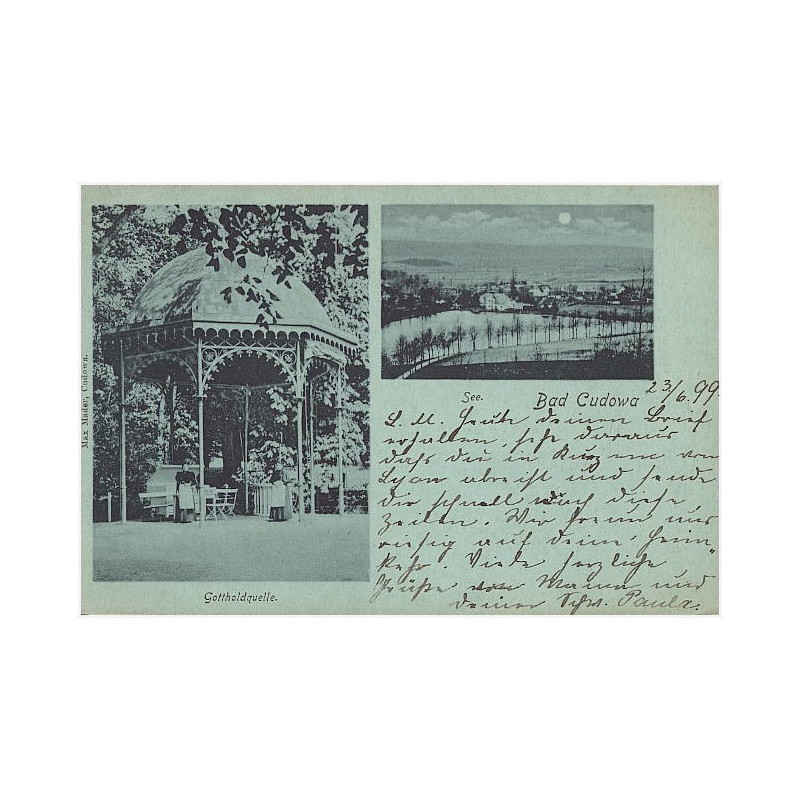 Max Mader, Cudowa.
Gottholdquelle.
See.
Bad Cudowa
23/6. 99.
L. M. Heute deinen Brief
erhalten, sehe daraus
daß du in Kurzem von
Lyon abreist und sende
dir schnell noch diese
Zeilen. Wir freun uns
riesig auf deine Heim"
kehr. Viele herzliche
Grüße von Mama und
deiner Schw. Paula.